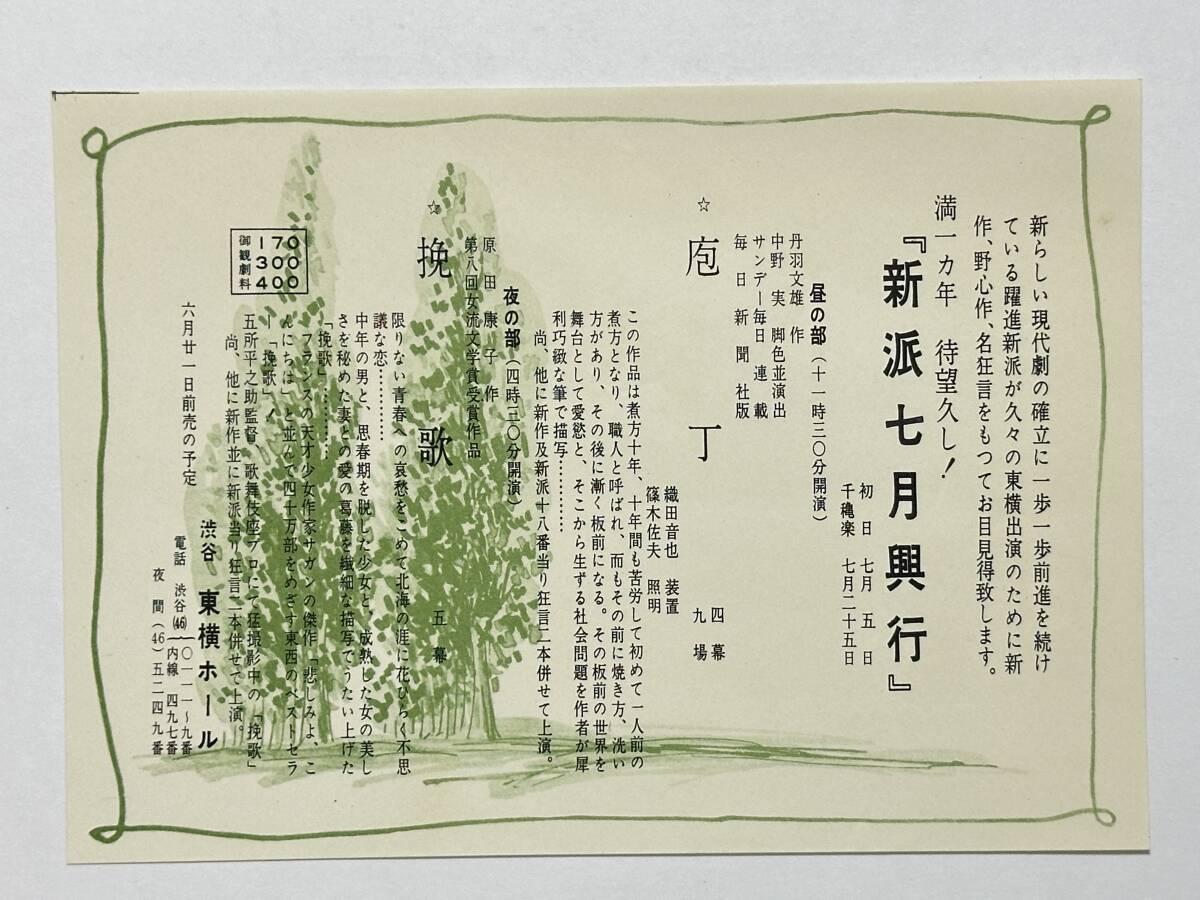 新らしい現代劇の確立に一歩一歩前進を続け
ている躍進新派が久々の東横出演のために新
作、野心作、名狂言をもつてお目見得致します。
満一カ年　待望久し！
『新派七月興行』
初日　七月五日
千龝楽　七月二十五日
昼の部（十一時三〇分開演）
丹羽文雄　作
中野　実　脚色並演出
サンデー毎日　連載
毎日新聞社版
☆　庖丁
四幕
九場
織田音也　装置
篠木佐夫　照明
この作品は煮方十年、十年間も苦労して初めて一人前の
煮方となり、職人と呼ばれ、而もその前に焼き方、洗い
方があり、その後に漸く板前になる。その板前の世界を
舞台として愛慾と、そこから生ずる社会問題を作者が犀
利巧緻な筆で描写…………
尚、他に新作及新派十八番当り狂言二本併せて上演。
夜の部（四時三〇分開演）
原田康子　作
第八回女流文学賞受賞作品
☆　挽歌　五幕
限りない青春への哀愁をこめて北海の涯に花ひらく不思
議な恋…………
中年の男と、思春期を脱した少女と、成熟した女の美し
さを秘めた妻との愛の葛藤を繊細な描写でうたい上げた
「挽歌」…………
フランスの天才少女作家サガンの傑作「悲しみよ、こ
んにちは」と並んで四十万部をめざす東西のベストセラ
ー「挽歌」！
五所平之助監督、歌舞伎座プロにて猛撮影中の「挽歌」
尚、他に新作並に新派当り狂言二本併せて上演。
御観劇料
170
300
400
六月廿一日前売の予定
渋谷　東横ホール
電話　渋谷(46)〇一一一～九番
内線　四九七番
夜間（46）五二四九番